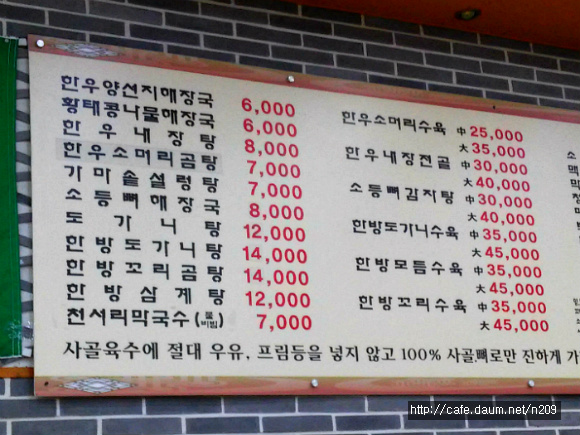 한우양선지해장국 6,000
황태콩나물해장국 6,000
한우내장탕 8,000
한우소머리곰탕 7,000
가마솥설렁탕 7,000
소등뼈해장국 8,000
도가니탕 12,000
한방도가니탕 14,000
한방꼬리곰탕 14,000
한방삼계탕 12,000
천서리막국수(물 비빔) 7,000
한우소머리수육 中 25,000
大 35,000
한우내장전골 中 30,000
大 40,000
소등뼈감자탕 中 30,000
大 40,000
한방도가니수육 中 35,000
大 45,000
한방모듬수육 中 35,000
大 45,000
한방꼬리수육 中 35,000
大 45,000
사골육수에 절대 우유, 프림등을 넣지 않고 100% 사골뼈로만 진하게
http://cafe.daum.net/n209